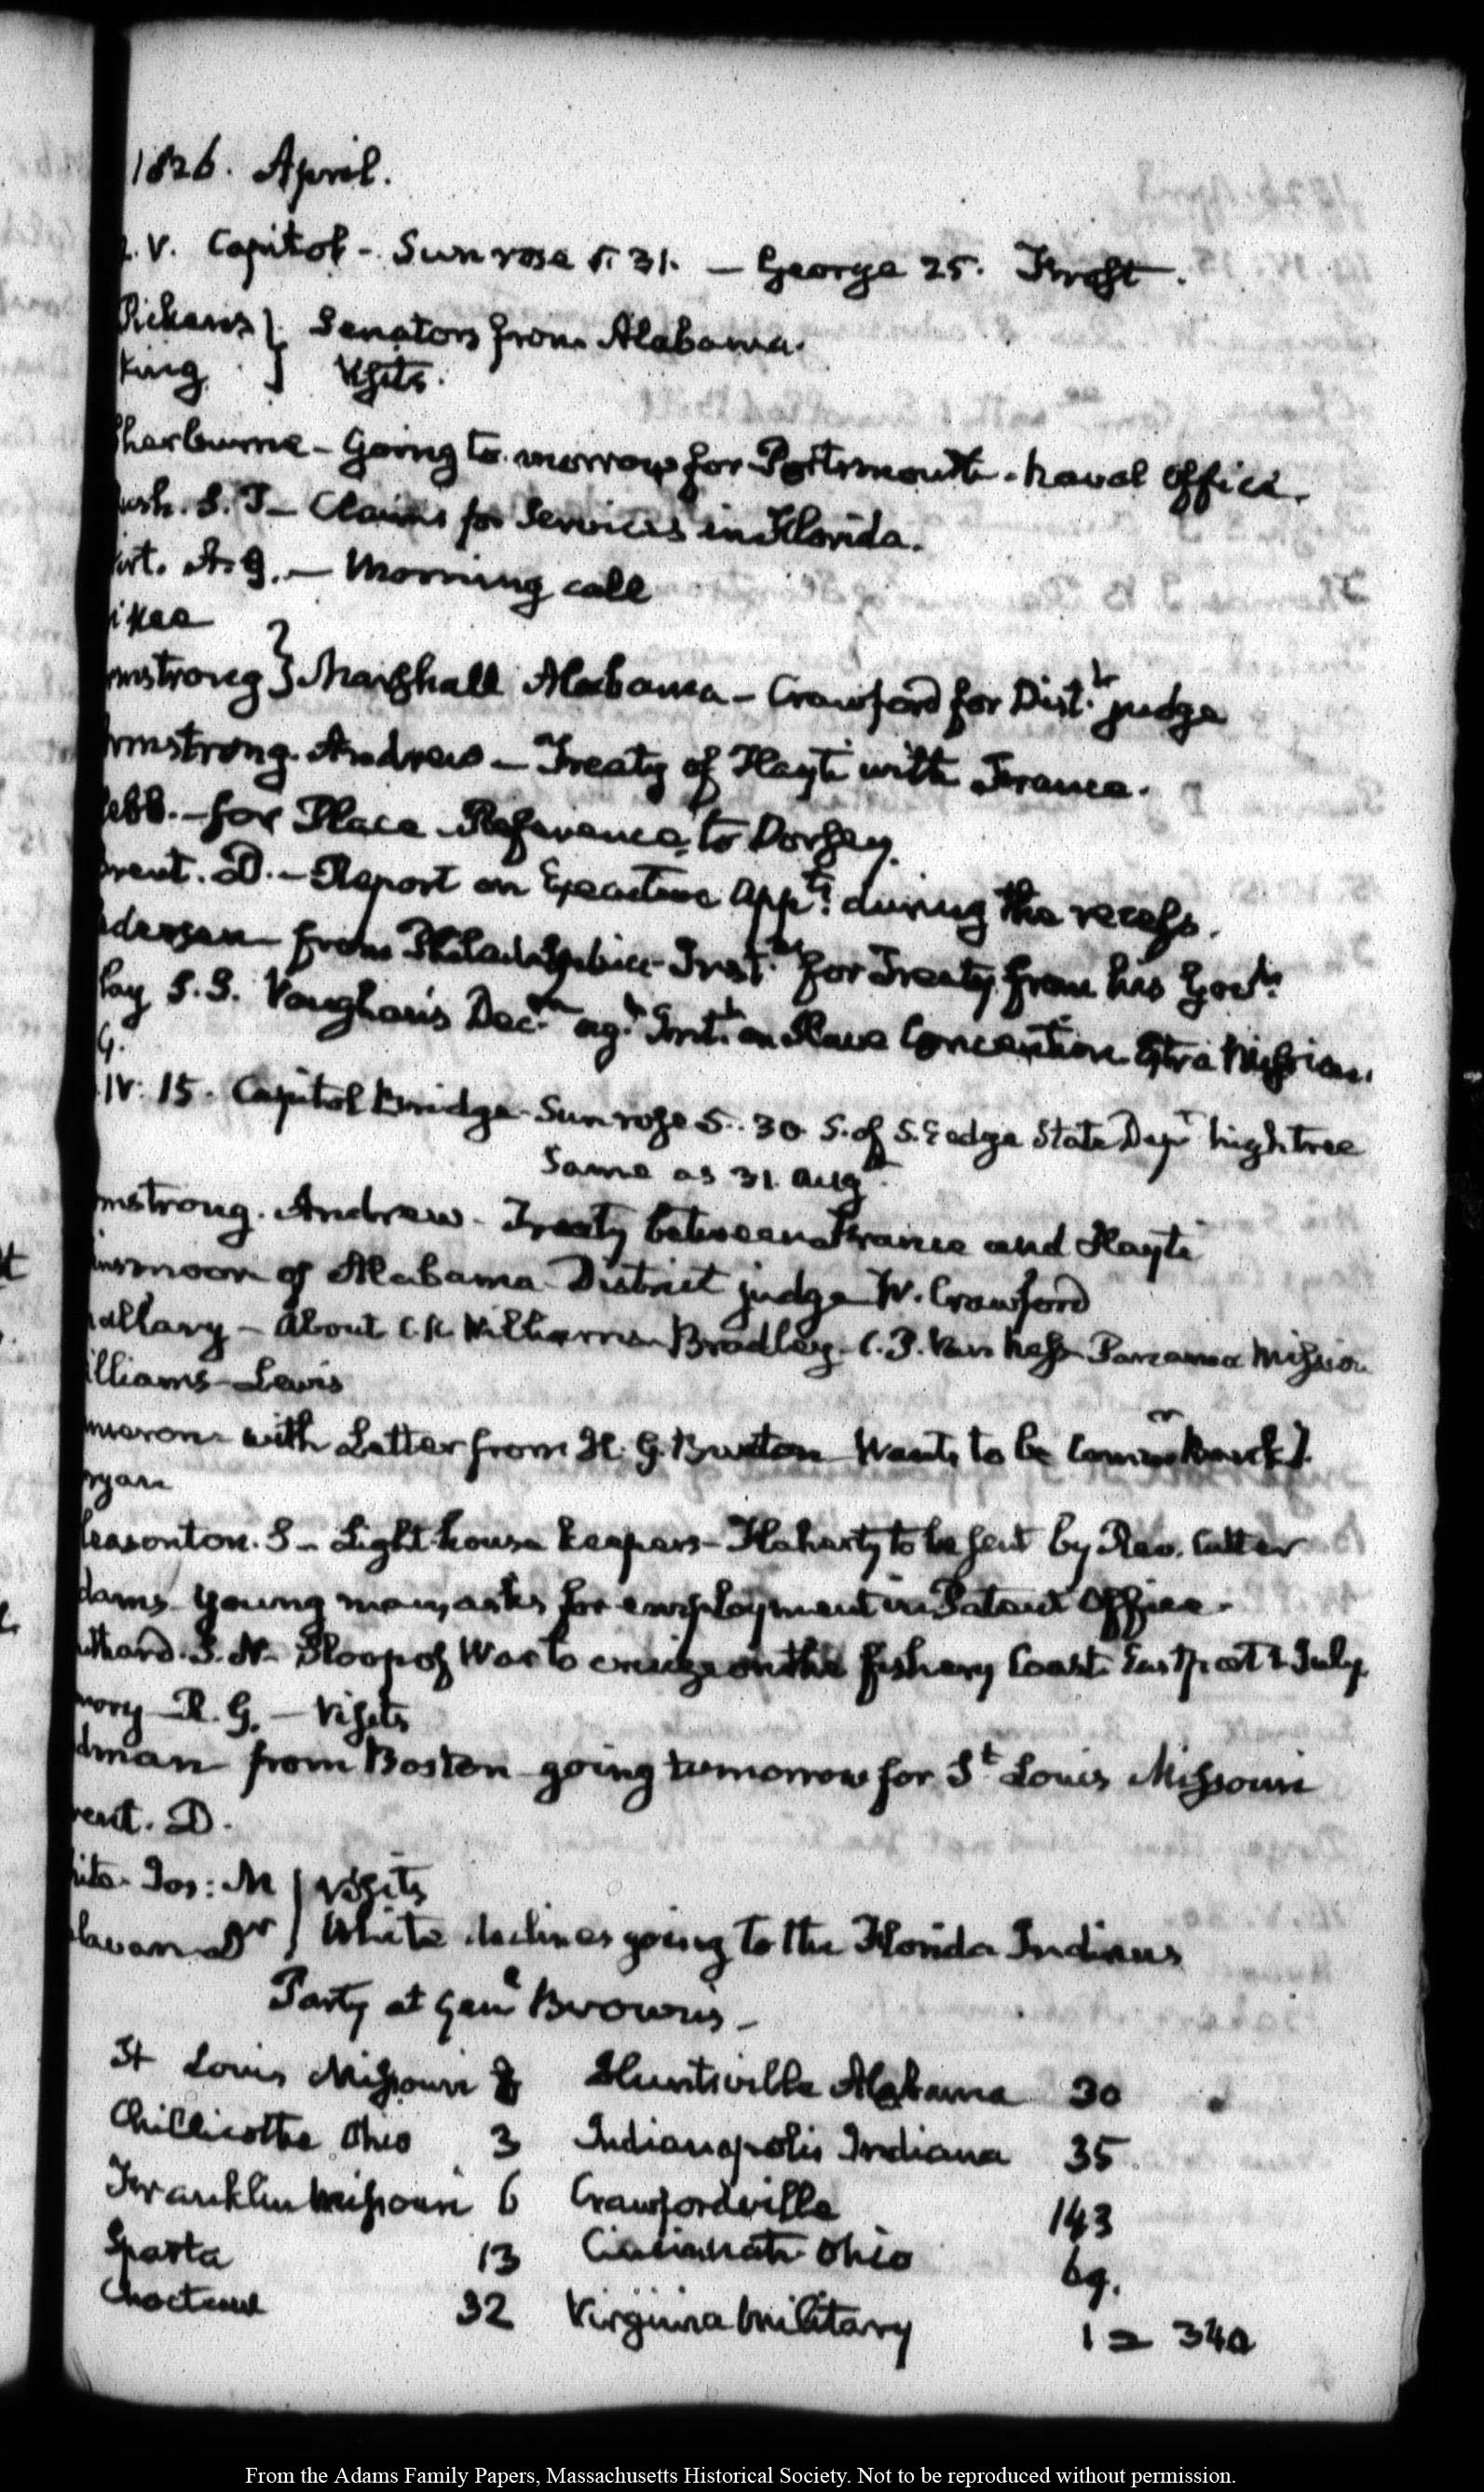 1826. April.
V. Capitol - Sun rose 5. 31. — George 25. Frost.
Pickens } Senators from Alabama.
King } Visits.
herburne - Going to morrow for Portsmouth - Naval Office.
ush. S. T - Claims for Services in Florida.
irt. A. G. — Morning call
ikee
mstrong } Marshall Alabama - Crawford for Distt. judge
rmstrong. Andrew - Treaty of Hayti with France.
ebb. - for Place - Reference to Dorsey.
rent. D. - Report on Executive appts. during the recess.
dersen from Philadelphia - for Treaty from his Govt.
lay S.S. Vaughan's on Slave Convention Mission.
G.
IV. 15. Capitol Bridge - Sun rose 5. 30 S. of S.E edge State Dept high tree
Same as 31. Augt.
mstrong. Andrew - Treaty between France and Hayti
inmoor of Alabama District judge W. Crawford
allary - About C. K. Williams - Bradley - C. P. Van Ness - Panama Mission
illiams - Lewis
meron - with Letter from H. G. Burton Wants to be
ryan
leasonton. S - Light-house keepers - Flaharty to be sent by Rev. Cutter
dams - young man, asks for employment in Patent Office.
uthard. S. N. Sloop of War to cruize on the fishery Coast July
mory - R. G. — Visits
dman from Boston going tomorrow for St Louis Missouri
rent. D.
hite. Jos: M } Visits
Dr } White declines going to the Florida Indians
Party at Genl Brown's -
St Louis Missouri 8 Huntsville Alabama 30
Chillicothe Ohio 3 Indianapolis Indiana 35
Franklin Missouri 6 Crawfordville 143
Sparta 13 Cincinnati Ohio 69.
Choctaw 32 Virginia Military 1 = 340
From the Adams Family Papers, Massachusetts Historical Society. Not to be reproduced without permission.